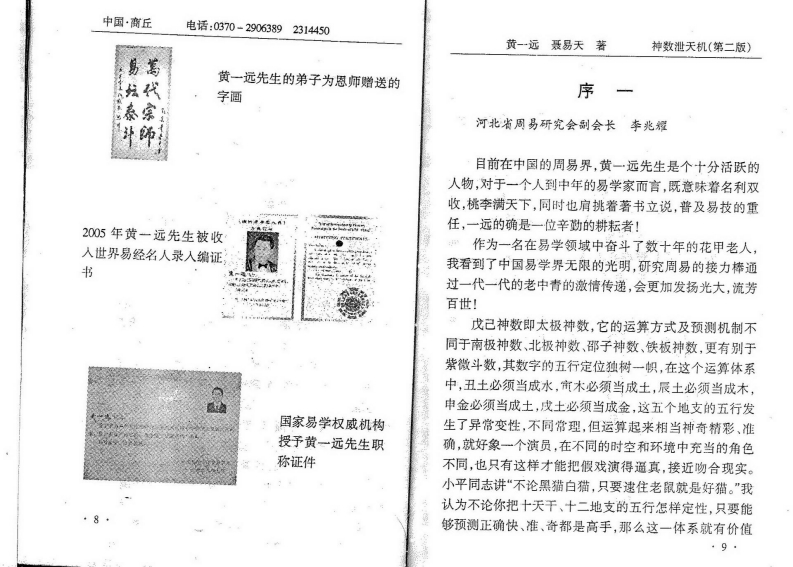 中国·商丘 电话:0370-2906389 2314450
黄一远先生的弟子为恩师赠送的
字画
萬代宗師
易坛泰斗
2005年黄一远先生被收
入世界易经名人录入编证
书
国家易学权威机构
授予黄一远先生职
称证件
·8·
黄一远 聂易天 著 神数泄天机(第二版)
序一
河北省周易研究会副会长 李兆耀
目前在中国的周易界,黄一远先生是个十分活跃的
人物,对于一个人到中年的易学家而言,既意味着名利双
收,桃李满天下,同时也肩挑着著书立说,普及易技的重
任,一远的确是一位辛勤的耕耘者!
作为一名在易学领域中奋斗了数十年的花甲老人,
我看到了中国易学界无限的光明,研究周易的接力棒通
过一代一代的老中青的激情传递,会更加发扬光大,流芳
百世!
戊己神数即太极神数,它的运算方式及预测机制不
同于南极神数、北极神数、邵子神数、铁板神数,更有别于
紫微斗数,其数字的五行定位独树一帜,在这个运算体系
中,丑土必须当成水,寅木必须当成土,辰土必须当成木,
申金必须当成土,戌土必须当成金,这五个地支的五行发
生了异常变性,不同常理,但运算起来相当神奇精彩、准
确,就好象一个演员,在不同的时空和环境中充当的角色
不同,也只有这样才能把假戏演得逼真,接近吻合现实。
小平同志讲“不论黑猫白猫,只要逮住老鼠就是好猫。”我
认为不论你把十天干、十二地支的五行怎样定性,只要能
够预测正确快、准、奇都是高手,那么这一体系就有价值
·9·